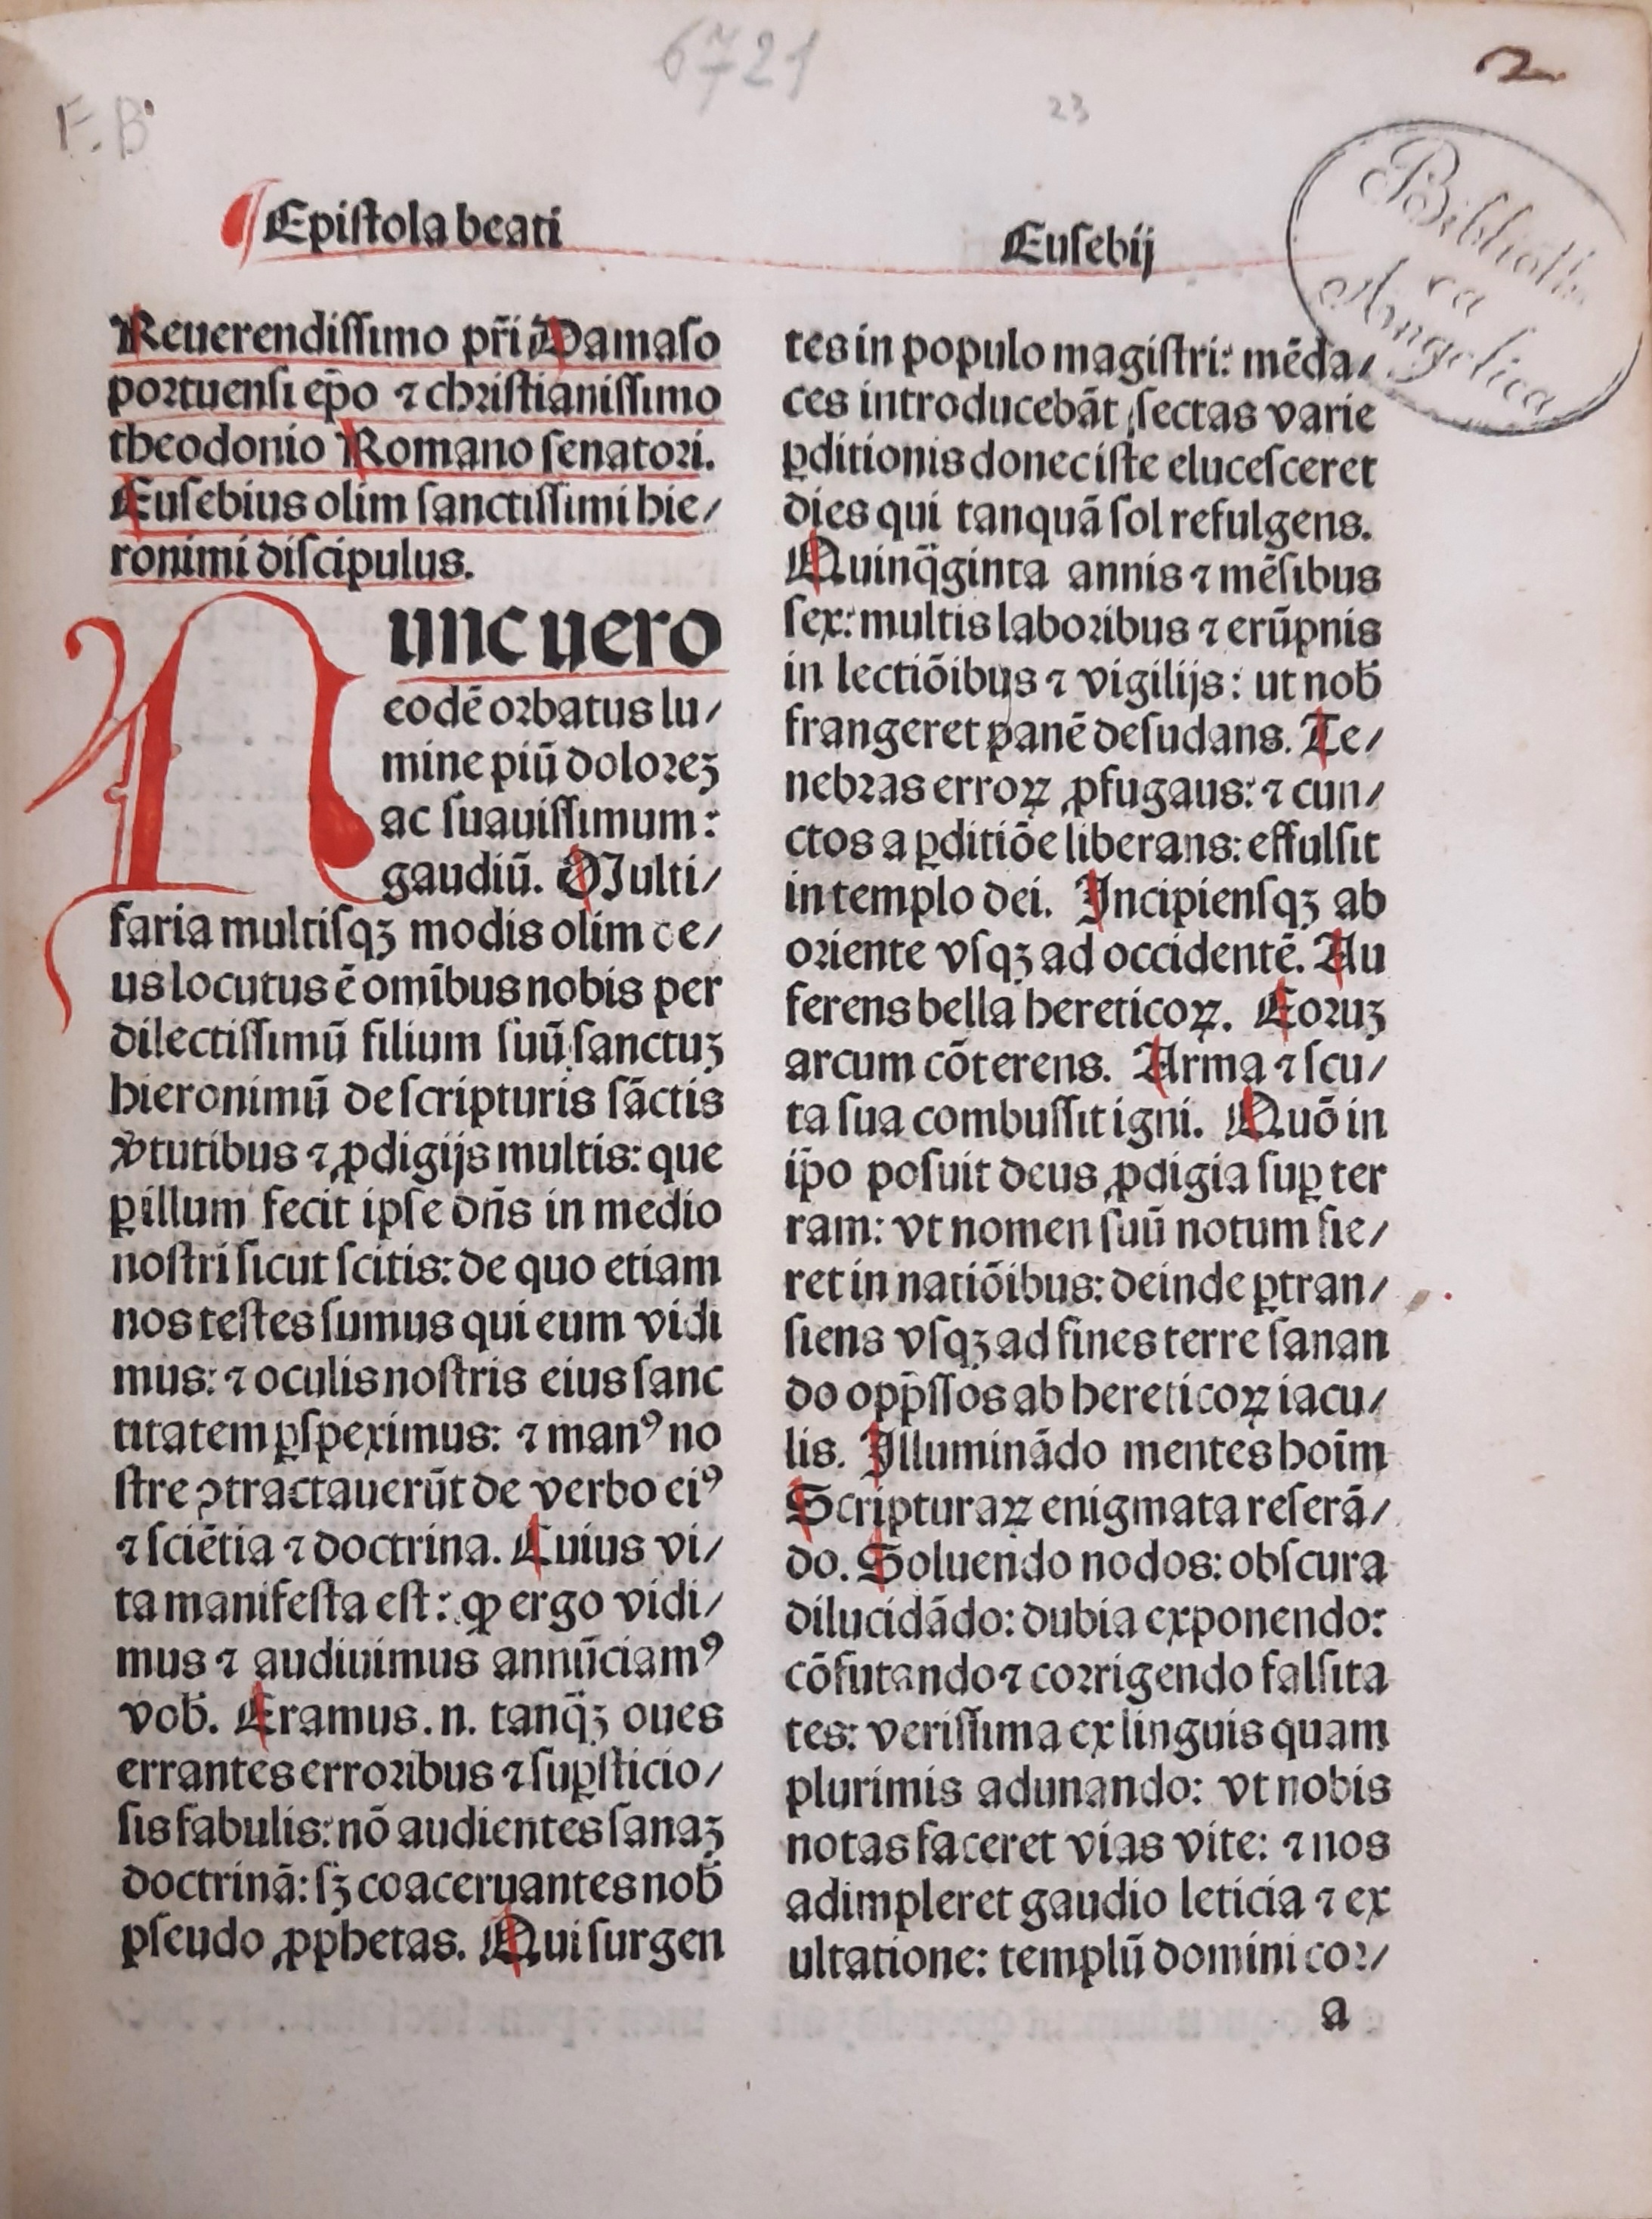 6721
23
2
F. B.
Bibliothe
ca
Angelica
¶ Epistola beati
Eusebij
Reuerendissimo pr̄i Damaso
portuensi ep̄o ⁊ christianissimo
theodonio Romano senatori.
Eusebius olim sanctissimi hie/
ronimi discipulus.
Nunc uero
eodē orbatus lu/
mine piū doloreꝫ
ac suauissimum:
gaudiū. Multi/
faria multisqꝫ modis olim de/
us locutus ē omībus nobis per
dilectissimū filium suū sanctuꝫ
hieronimū de scripturis sāctis
v̓tutibus ⁊ ꝓdigijs multis: que
ꝑ illum fecit ipse dn̄s in medio
nostri sicut scitis: de quo etiam
nos testes sumus qui eum vidi
mus: ⁊ oculis nostris eius sanc
titatem ꝑspeximus: ⁊ manꝰ no
stre ꝯtractauerūt de verbo eiꝰ
⁊ sciētia ⁊ doctrina. Cuius vi/
ta manifesta est: ꝙ ergo vidi/
mus ⁊ audiuimus annūciamꝰ
vob̄. Eramus .n. tanq̄ꝫ oues
errantes erroribus ⁊ suꝑsticio/
sis fabulis: nō audientes sanaꝫ
doctrinā: sꝫ coaceruantes nob̄
pseudo ꝓphetas. Qui surgen
tes in populo magistri: mēda/
ces introducebāt sectas varie
ꝑditionis donec iste elucesceret
dies qui tanquā sol refulgens.
Quinq̄ginta annis ⁊ mēsibus
sex: multis laboribus ⁊ erūpnis
in lectiōibus ⁊ vigilijs: ut nob̄
frangeret panē desudans. Te/
nebras erroꝝ ꝓfugaus: ⁊ cun/
ctos a ꝑditiōe liberans: effulsit
in templo dei. Incipiensqꝫ ab
oriente vsqꝫ ad occidentē. Au
ferens bella hereticoꝝ. Eoruꝫ
arcum cōterens. Arma ⁊ scu/
ta sua combussit igni. Quō in
ip̄o posuit deus ꝓdigia suꝑ ter
ram: vt nomen suū notum fie/
ret in natiōibus: deinde ꝑtran/
siens vsqꝫ ad fines terre sanan
do opp̄ssos ab hereticoꝝ iacu/
lis. Illuminādo mentes hoīm
Scripturaꝝ enigmata reserā/
do. Soluendo nodos: obscura
dilucidādo: dubia exponendo:
cōfutando ⁊ corrigendo falsita
tes: verissima ex linguis quam
plurimis adunando: vt nobis
notas faceret vias vite: ⁊ nos
adimpleret gaudio leticia ⁊ ex
ultatione: templū domini cor/
a